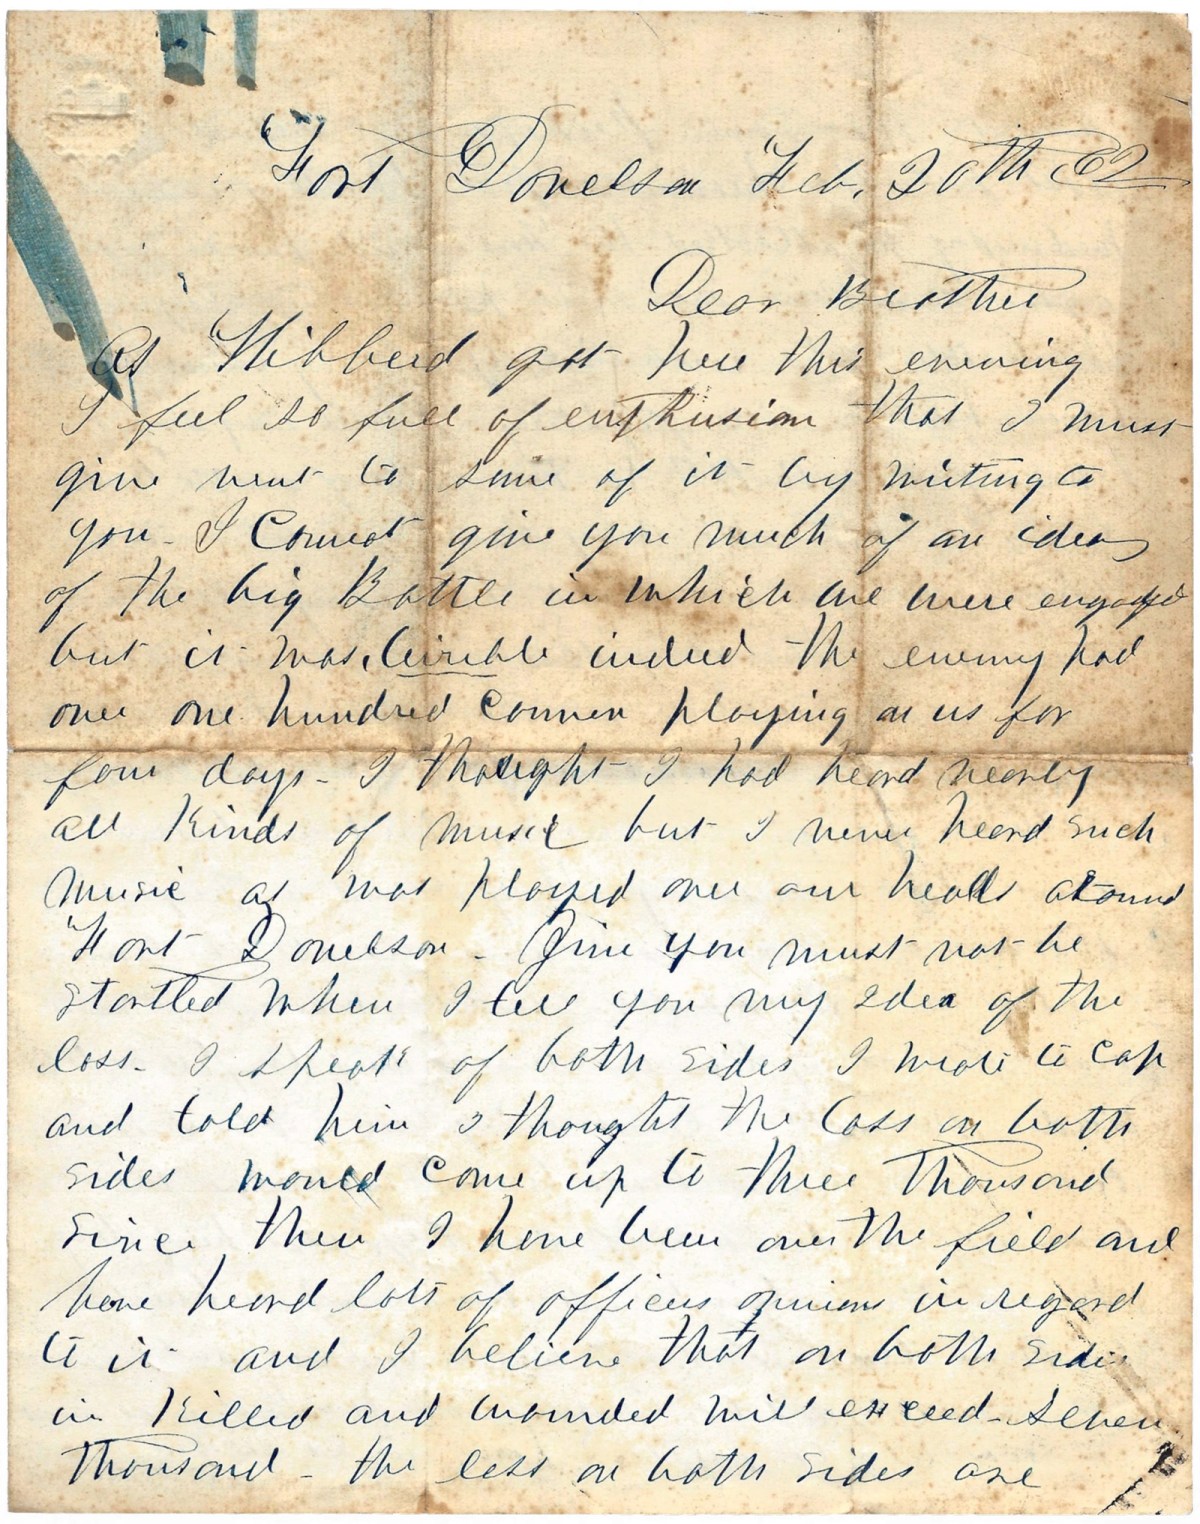 Fort Donelson Feb. 20th 62
Dear Brother
As Hibberd got here this evening
I feel so full of enthusiasm that I must
give vent to some of it by writing to
you - I cannot give you much of an idea
of the big Battle in which we were engaged
but it was, terrible indeed the enemy had
over one hundred cannon playing on us for
four days - I thought I had heard nearly
all kinds of music but I never heard such
music as was played over our heads around
Fort Donelson - Jim you must not be
startled when I tell you my idea of the
loss - I speak of both sides I wrote to Cap
and told him I thought the loss on both
sides would come up to three thousand
since then I have been over the field and
have heard lots of officers opinions in regard
to it and I believe that on both sides
in killed and wounded will exceed - seven
thousand - the loss on both sides are